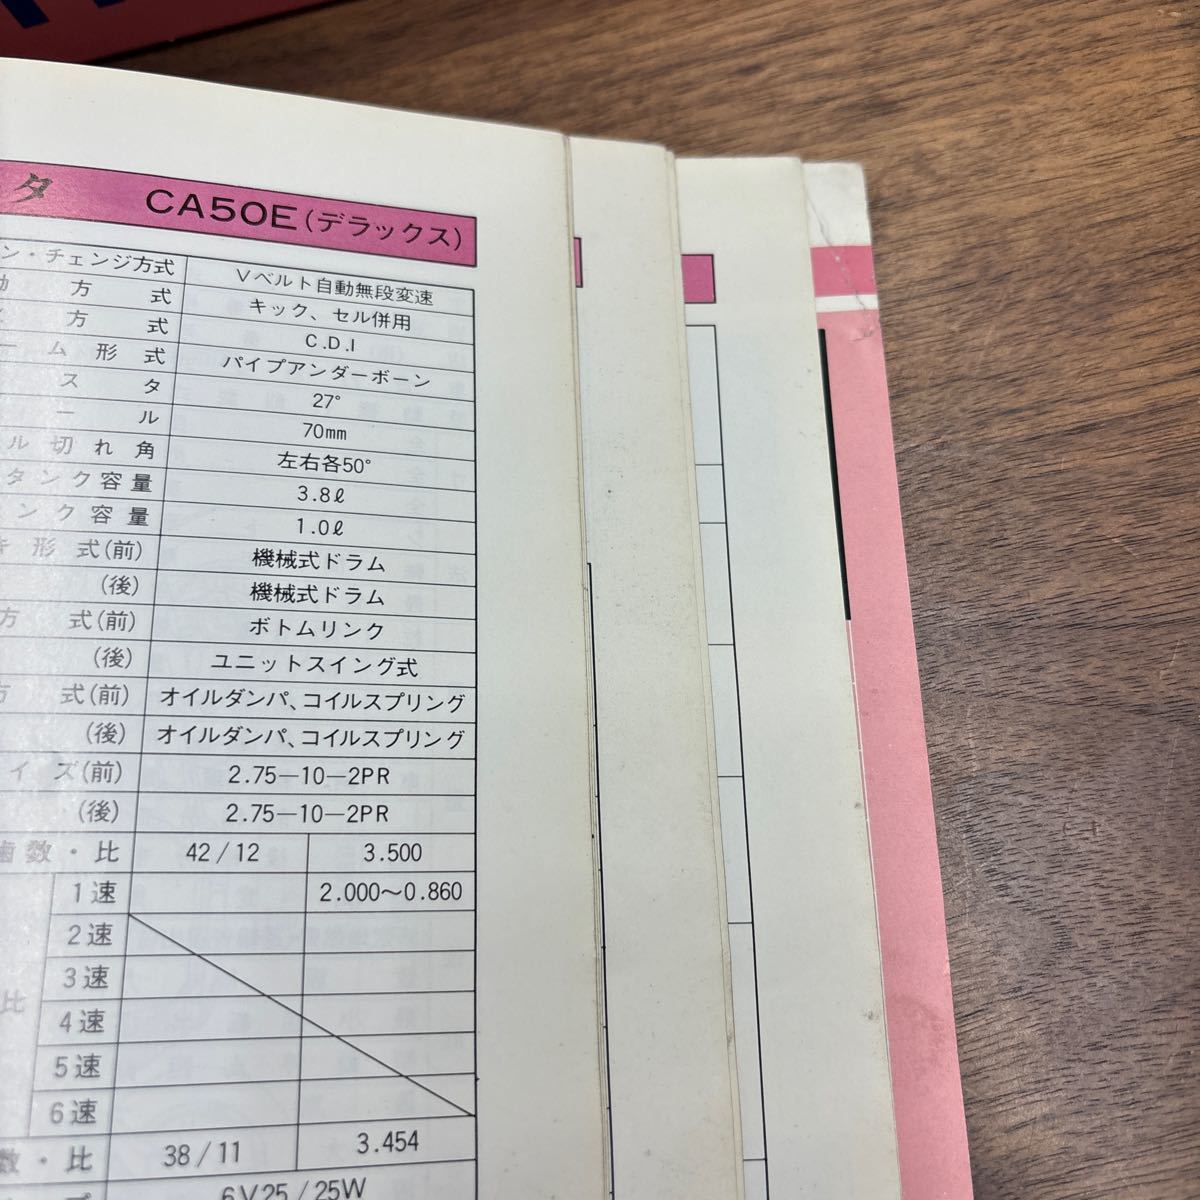 タ CA50E(デラックス)
ン・チェンジ方式 Vベルト自動無段変速
動方式 キック、セル併用
方式 C.D.I
ーム形式 パイプアンダーボーン
スタ 27°
ール 70mm
ル切れ角 左右各50°
タンク容量 3.8ℓ
ンク容量 1.0ℓ
キ形式(前) 機械式ドラム
(後) 機械式ドラム
方式(前) ボトムリンク
(後) ユニットスイング式
方式(前) オイルダンパ、コイルスプリング
(後) オイルダンパ、コイルスプリング
イズ(前) 2.75-10-2PR
(後) 2.75-10-2PR
歯数・比 42/12 3.500
1速 2.000～0.860
2速
3速
比 4速
5速
6速
数・比 38/11 3.454
プ 6V25/25W